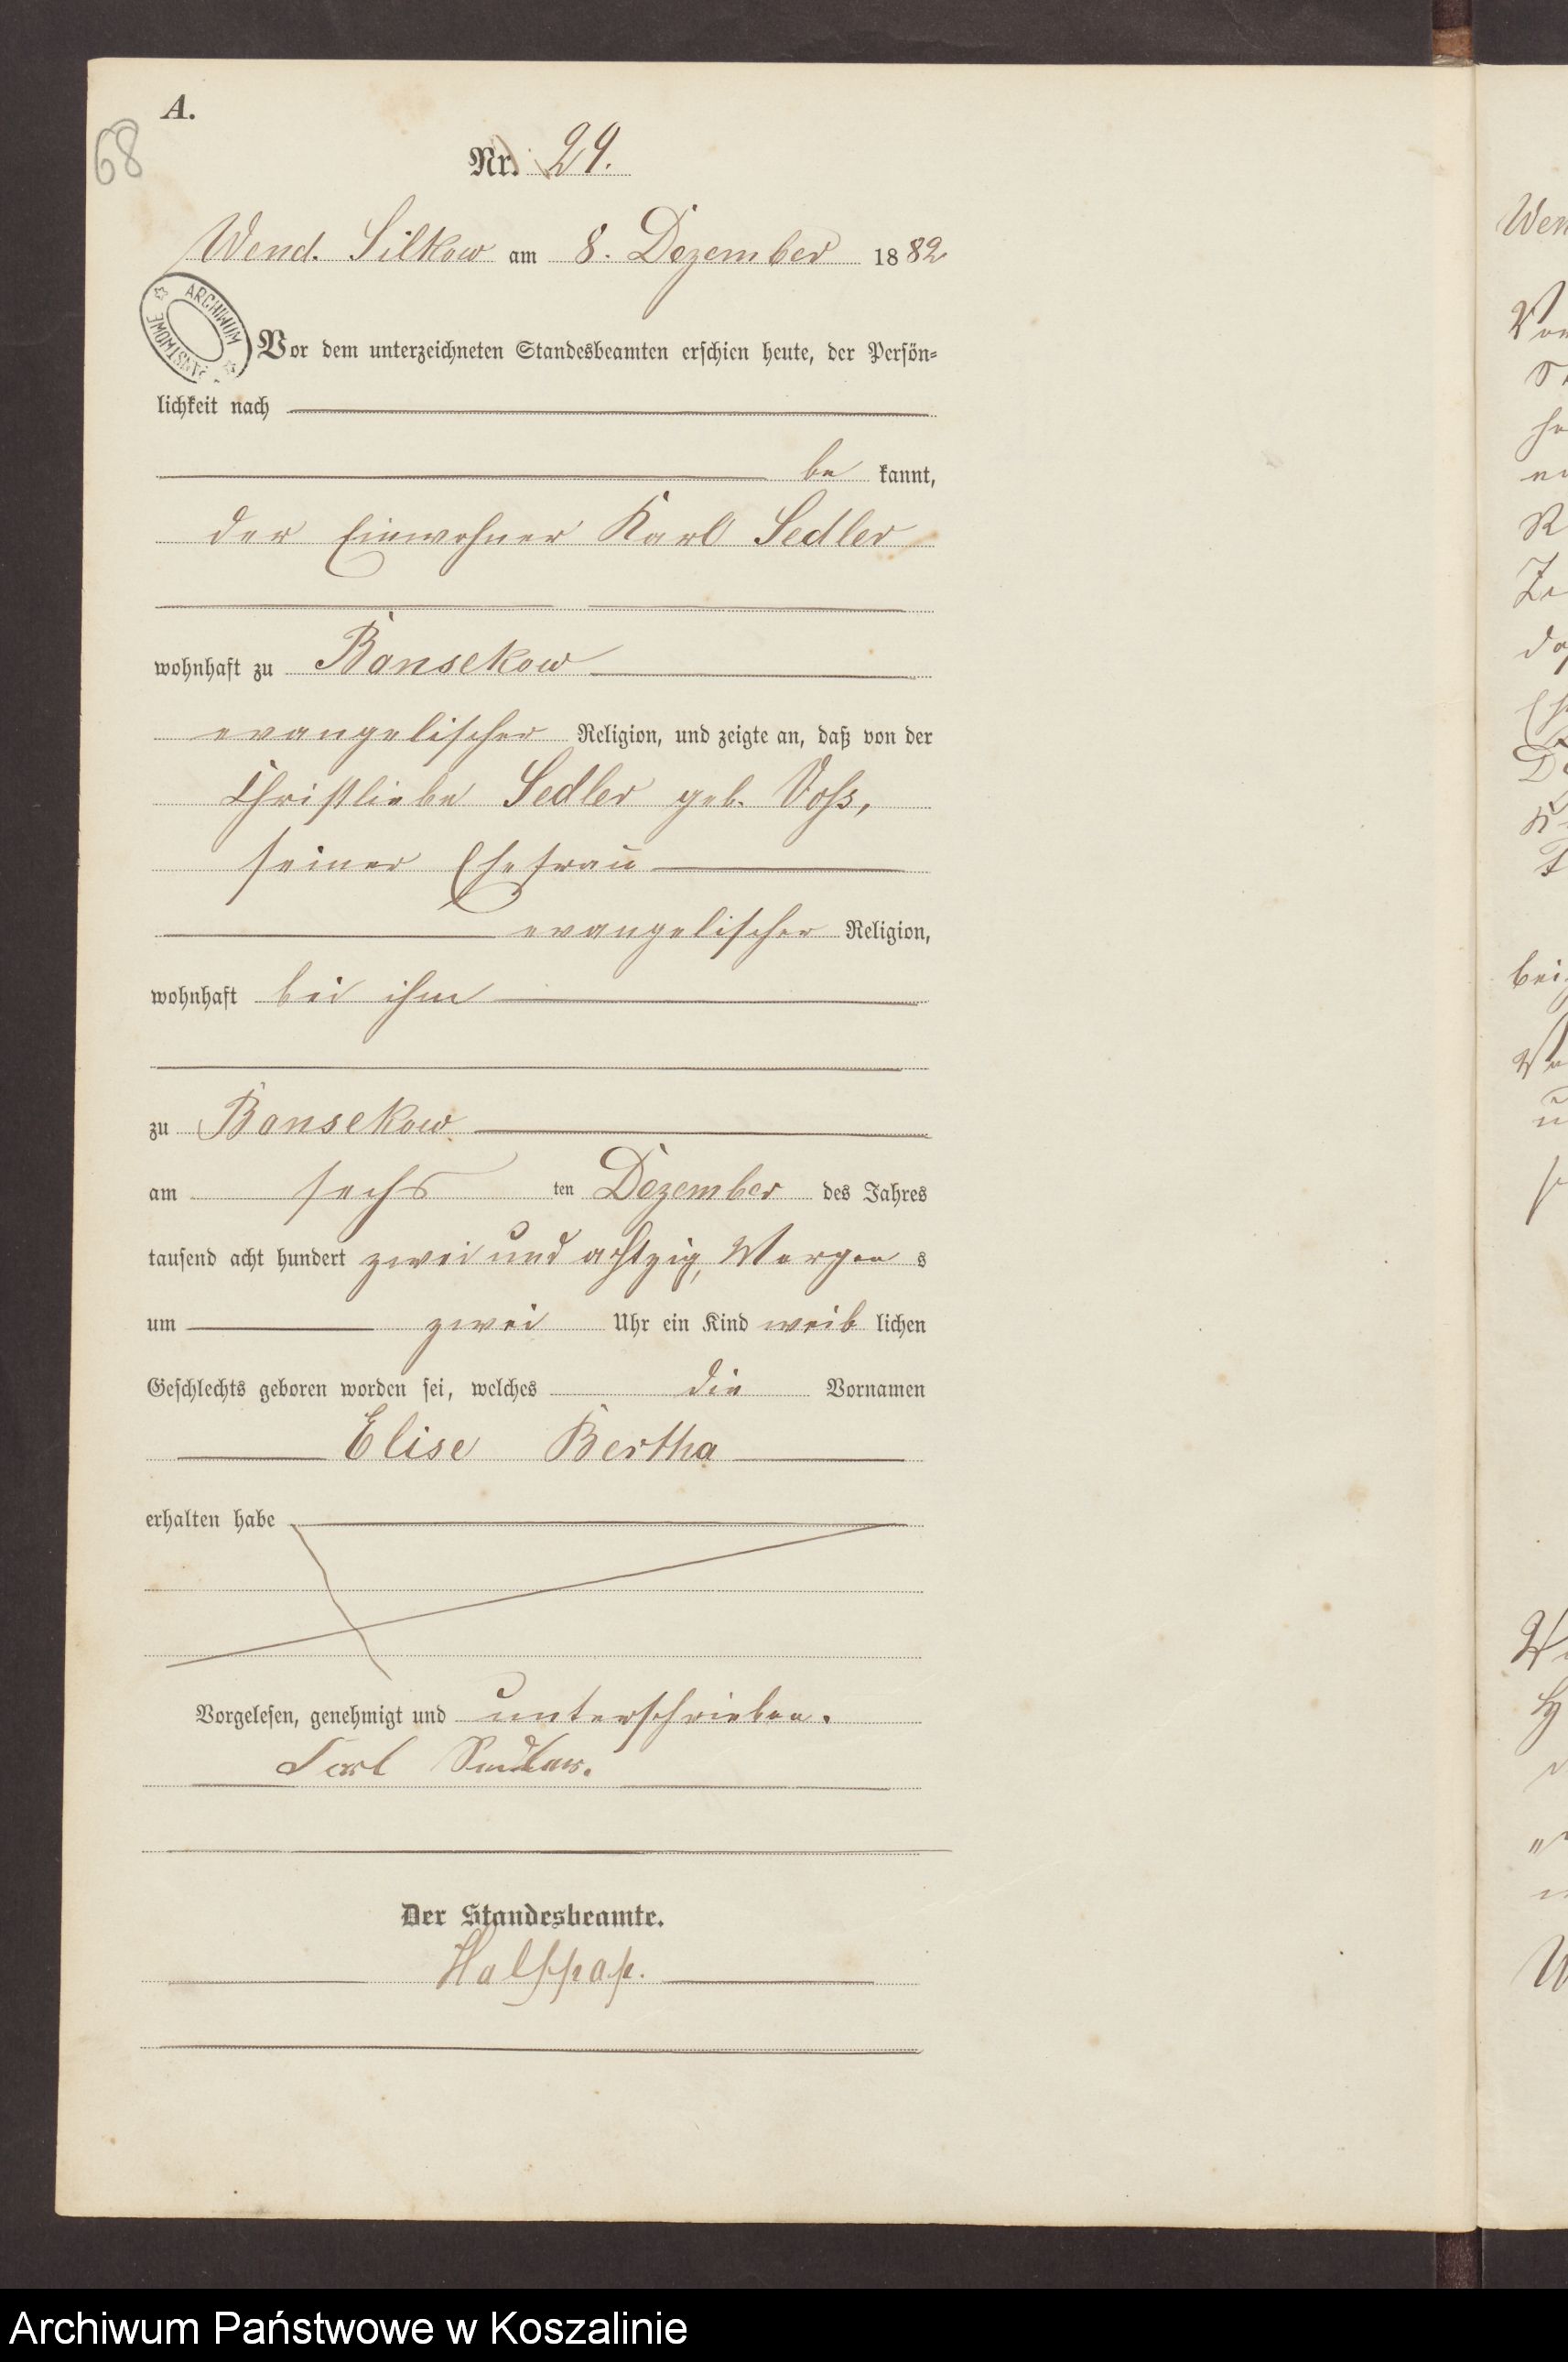 A.
68
Nr. 29.
Wend. Silkow am 8. Dezember 1882
ARCHIWUM PAŃSTWOWE
Vor dem unterzeichneten Standesbeamten erschien heute, der Persön-
lichkeit nach
be kannt,
der Einwohner Karl Sedler
wohnhaft zu Bansekow
evangelischer Religion, und zeigte an, daß von der
Christliebe Sedler geb. Voß,
seiner Ehefrau
evangelischer Religion,
wohnhaft bei ihm
zu Bansekow
am sechs ten Dezember des Jahres
tausend acht hundert zwei und achtzig, Morgen s
um zwei Uhr ein Kind weib lichen
Geschlechts geboren worden sei, welches die Vornamen
Elise Bertha
erhalten habe
Vorgelesen, genehmigt und unterschrieben.
Carl
Der Standesbeamte.
Archiwum Państwowe w Koszalinie